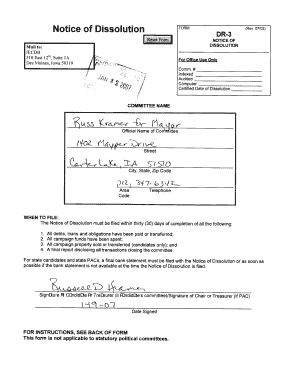 Notice of Dissolution
Reset Form
FORM
(Rev. 07/03)
DR-3
NOTICE OF
DISSOLUTION
Mail to:
IECDB
510 East 12th, Suite 1A
Des Moines, Iowa 50319
For Office Use Only
Comm. #
Indexed
Audited
Computer
Certified Date of Dissolution
JAN 2007
COMMITTEE NAME
Russ Kramer for Mayor
Official Name of Committee
1402 Mayper Drive
Street
Carter Lake, IA 51510
City, State, Zip Code
712, 347-6342
Area Telephone
Code
WHEN TO FILE:
The Notice of Dissolution must be filed within thirty (30) days of completion of all the following:
1. All debts, loans and obligations have been paid or transferred.
2. All campaign funds have been spent;
3. All campaign property sold or transferred (candidates only); and
4. A final report disclosing all transactions closing the committee.
For state candidates and state PACs, a final bank statement must be filed with the Notice of Dissolution or as soon as
possible if the bank statement is not available at the time the Notice of Dissolution is filed.
Russell D Kramer
committee/Signature of Chair or Treasurer (if PAC)
1-19-07
Date Signed
FOR INSTRUCTIONS, SEE BACK OF FORM
This form is not applicable to statutory political committees.